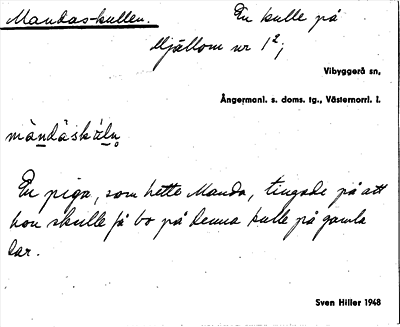 Mandas-kullen.
En kulle på
Mjällom nr 1²;
Vibyggerå sn,
Ångermanl. s. doms. tg., Västernorrl. l.
màndàskùln̥
En piga, som hette Manda, tingade på att
hon skulle få bo på denna kulle på gamla
dar.
Sven Hiller 1948